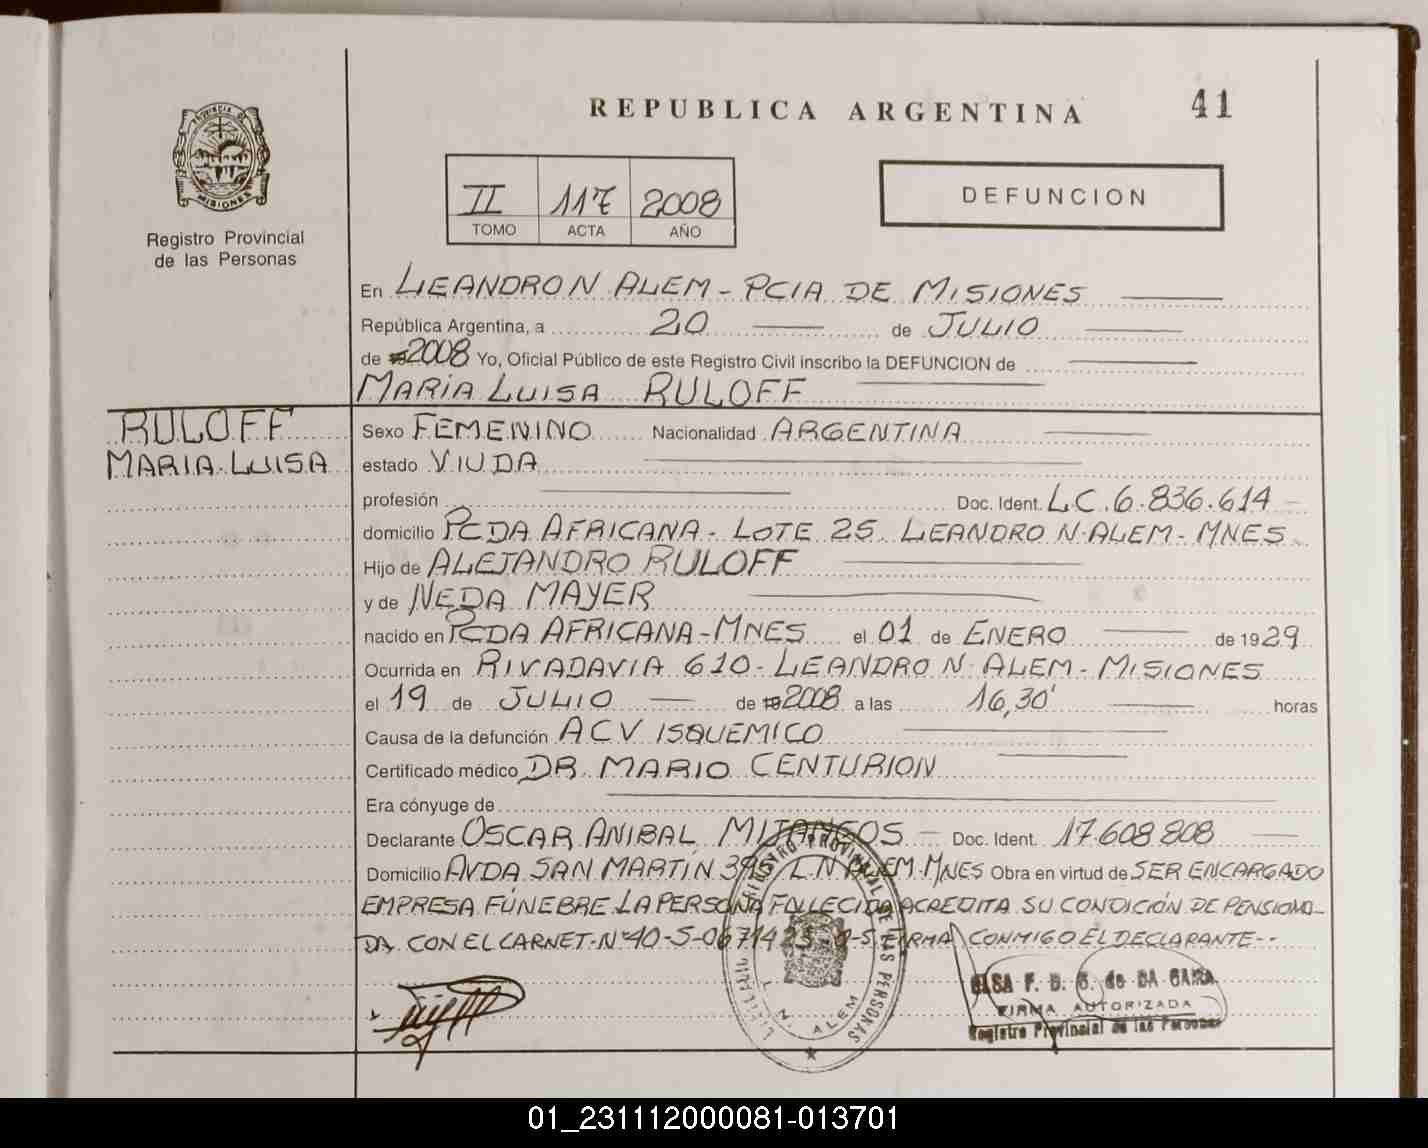 REPUBLICA ARGENTINA
41
PROVINCIA DE
MISIONES
Registro Provincial
de las Personas
II 117 2008
TOMO ACTA AÑO
DEFUNCION
En LEANDRO N ALEM - PCIA DE MISIONES
República Argentina, a 20 de JULIO
de 2008 Yo, Oficial Público de este Registro Civil inscribo la DEFUNCION de
MARIA LUISA RULOFF
RULOFF
MARIA LUISA
Sexo FEMENINO Nacionalidad ARGENTINA
estado VIUDA
profesión Doc. Ident. L.C. 6.836.614
domicilio PCDA AFRICANA - LOTE 25 LEANDRO N. ALEM - MNES
Hijo de ALEJANDRO RULOFF
y de NEDA MAYER
nacido en PCDA AFRICANA - MNES el 01 de ENERO de 1929
Ocurrida en RIVADAVIA 610 - LEANDRO N. ALEM - MISIONES
el 19 de JULIO de 2008 a las 16,30' horas
Causa de la defunción ACV ISQUEMICO
Certificado médico DR. MARIO CENTURION
Era cónyuge de
Declarante OSCAR ANIBAL MITANGOS Doc. Ident. 17.608.808
Domicilio AVDA SAN MARTIN L.N. ALEM - MNES Obra en virtud de SER ENCARGADO
EMPRESA FÚNEBRE. LA PERSONA FALLECIDA ACREDITA SU CONDICIÓN DE PENSIONA-
DA CON EL CARNET. Nº 40-5-0671425 FIRMA CONMIGO EL DECLARANTE--
REGISTRO PROVINCIAL DE LAS PERSONAS
L. N. ALEM
ELSA F. D. C. de DA GAMA
FIRMA AUTORIZADA
Registro Provincial de las Personas
01_231112000081-013701